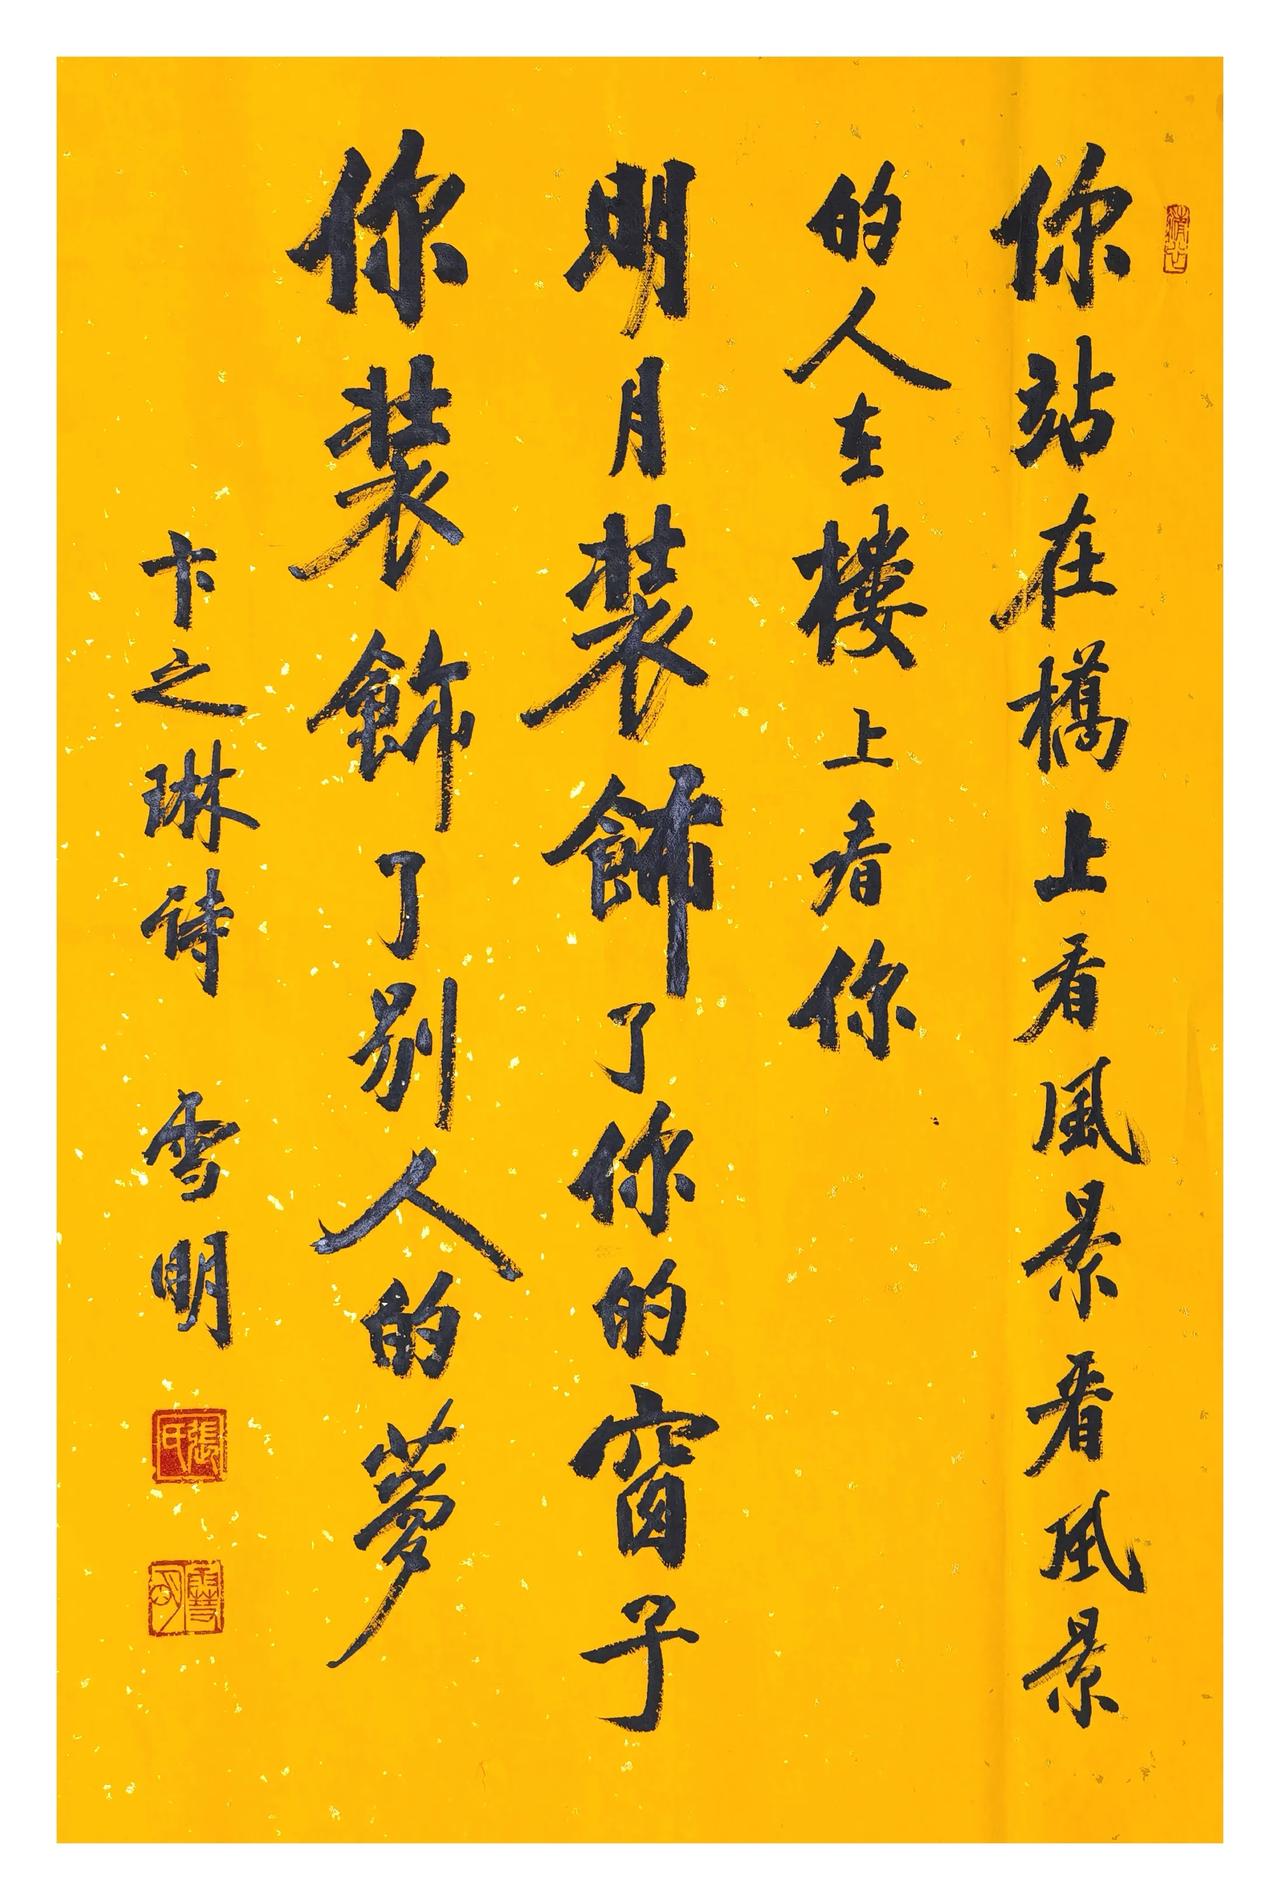 你站在橋上看風景看风景
的人在楼上看你
明月装飾了你的窗子
你装飾了别人的萝
卞之琳诗 雪明
張氏
雪明